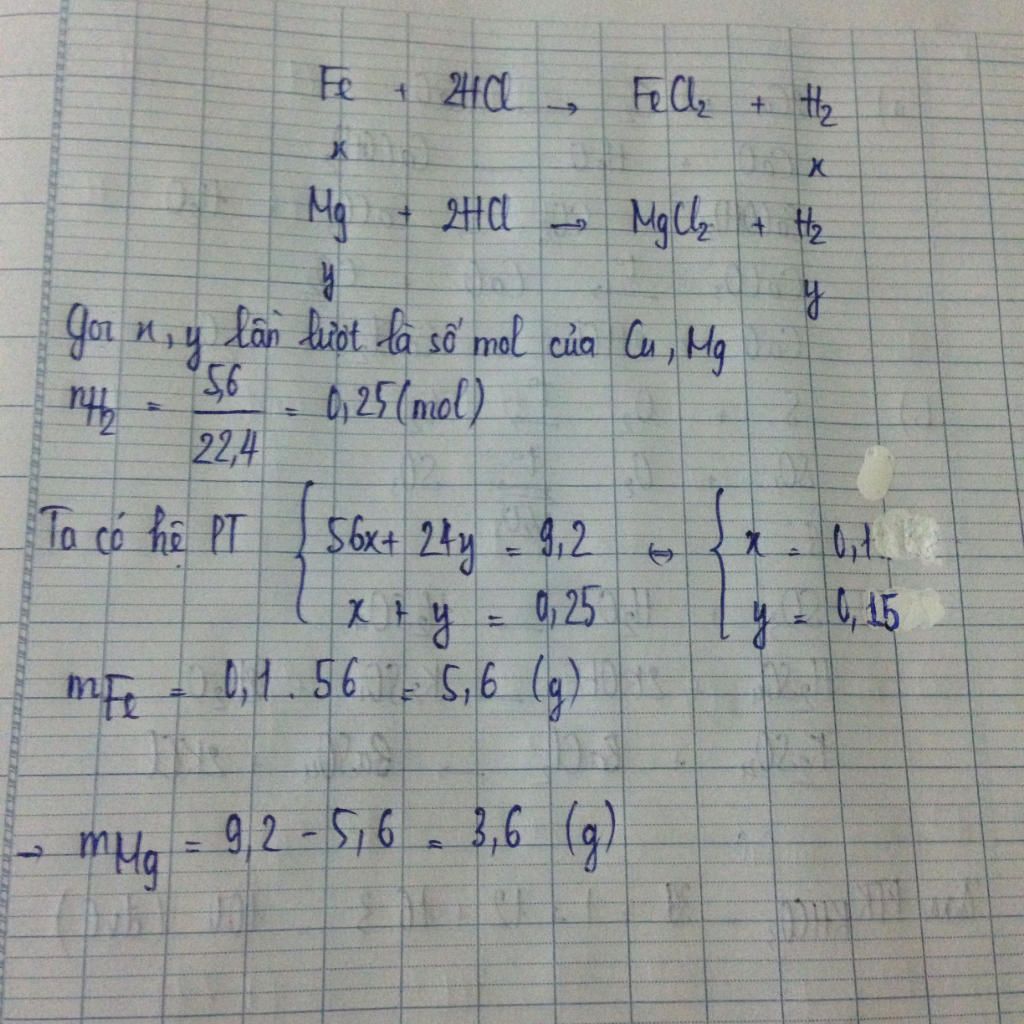 Fe + 2HCl → FeCl₂ + H₂
x x
Mg + 2HCl → MgCl₂ + H₂
y y
Gọi x, y lần lượt là số mol của Cu, Mg
nH₂ = 5,6 / 22,4 = 0,25 (mol)
Ta có hệ PT { 56x + 24y = 9,2 ⇔ { x = 0,1
x + y = 0,25 y = 0,15
mFe = 0,1 . 56 = 5,6 (g)
→ mMg = 9,2 - 5,6 = 3,6 (g)